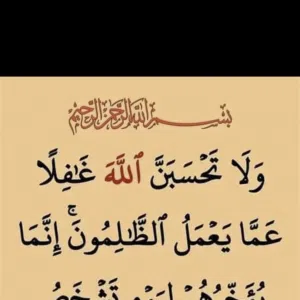 بسم الله الرحمن الرحيم
وَلَا تَحْسَبَنَّ ٱللَّهَ غَٰفِلًا
عَمَّا يَعْمَلُ ٱلظَّٰلِمُونَ ۚ إِنَّمَا
يُؤَخِّرُهُمْ لِيَوْمٍ تَشْخَصُ